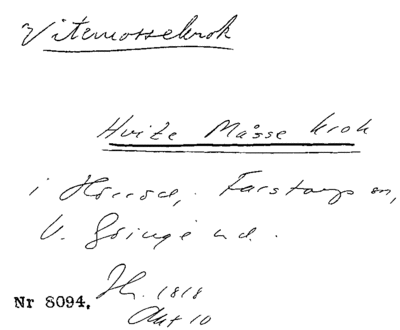 Vitemossekrok
Hvite Måsse krok
i Farstorps sn,
V. Göinge hd.
Nr 8094. 1818
Akt 10